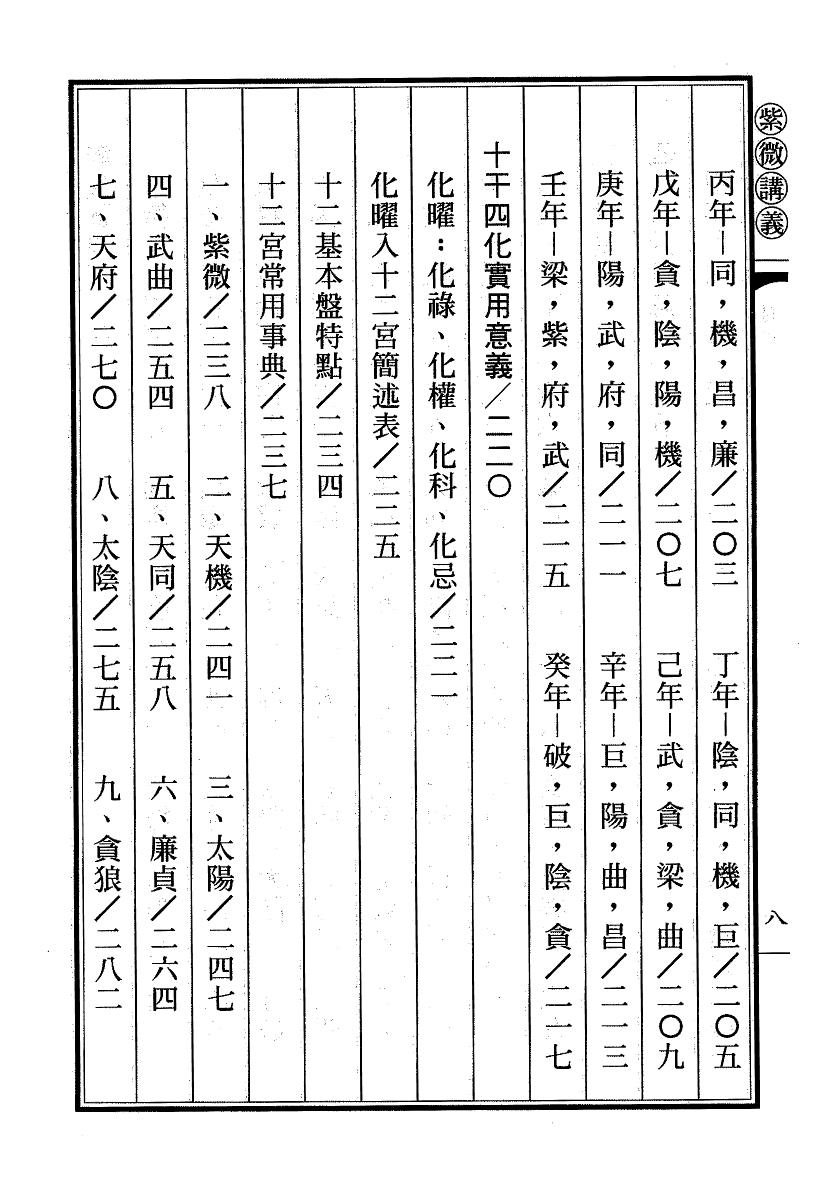 紫微講義
八
丙年—同，機，昌，廉／二〇三　丁年—陰，同，機，巨／二〇五
戊年—貪，陰，陽，機／二〇七　己年—武，貪，梁，曲／二〇九
庚年—陽，武，府，同／二一一　辛年—巨，陽，曲，昌／二一三
壬年—梁，紫，府，武／二一五　癸年—破，巨，陰，貪／二一七
十干四化實用意義／二二〇
化曜：化祿、化權、化科、化忌／二二一
化曜入十二宮簡述表／二二五
十二基本盤特點／二三四
十二宮常用事典／二三七
一、紫微／二三八　二、天機／二四一　三、太陽／二四七
四、武曲／二五四　五、天同／二五八　六、廉貞／二六四
七、天府／二七〇　八、太陰／二七五　九、貪狼／二八二